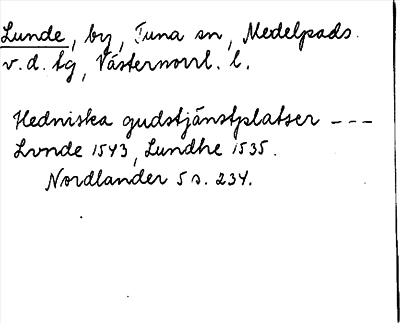 Lunde, by, Tuna sn, Medelpads
v. d. tg, Västernorrl. l.
Hedniska gudstjänstplatser ---
Lvnde 1543, Lundhe 1535.
Nordlander 5 s. 234.